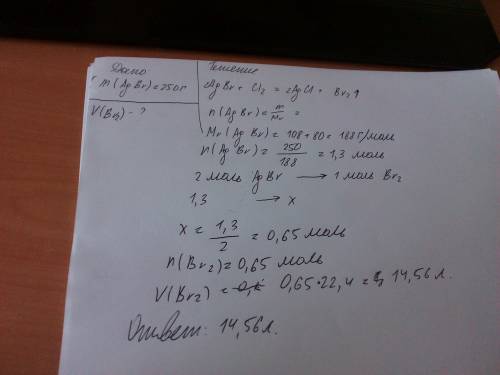 Дано
m(AgBr)=250г
V(Br₂) - ?
Решение
2AgBr + Cl₂ = 2AgCl + Br₂↑
n(AgBr)= m/Mr =
Mr(AgBr) = 108+80 = 188г/моль
n(AgBr)= 250/188 = 1,3 моль
2 моль AgBr → 1 моль Br₂
1,3 → x
x = 1,3/2 = 0,65 моль
n(Br₂)=0,65 моль
V(Br₂) = 0,65·22,4 = 14,56 л.
Ответ: 14,56л.